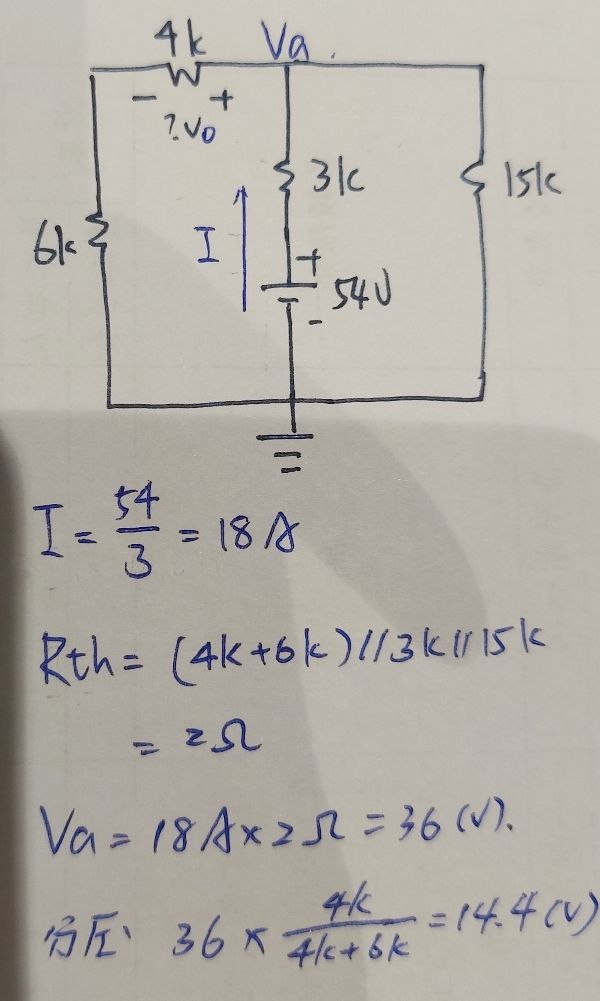 4k Va.
- +
?Vo
3k 15k
6k I + 54V
-
I = 54/3 = 18A
Rth = (4k+6k)//3k//15k
= 2Ω
Va = 18A×2Ω = 36(V).
分压 36 × 4k/4k+6k = 14.4(V)